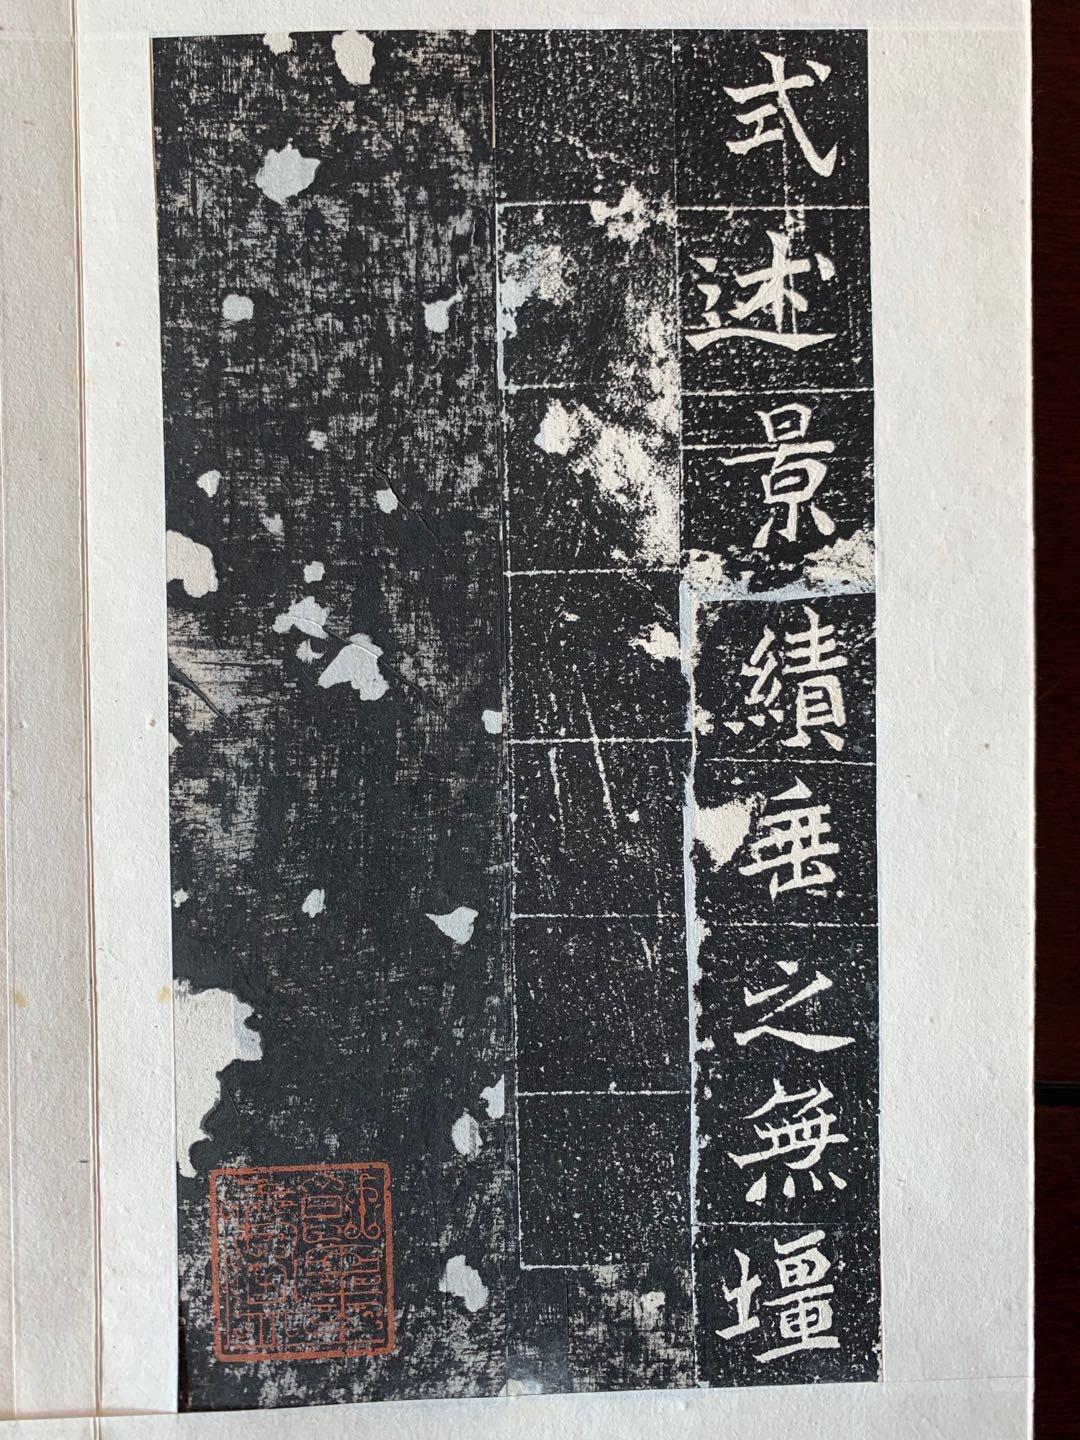 式述景績垂之無壃